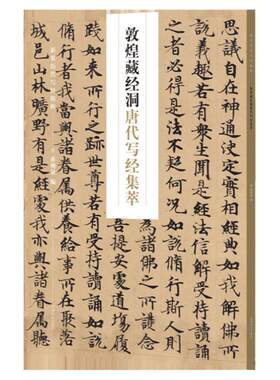 敦煌藏经洞唐代写经集萃
思議自在神通決定實相經典如我解佛所
說義趣若有衆生聞是經法信解受持讀
得是法不疑何況如說脩行斯人則
為諸佛之所護念
菩提安處道場履
踐如来所行之跡世尊若有受持讀誦如說
脩行者我當與諸眷属供養給事所在聚落
城邑山林曠野有是經處我亦與諸眷属聽